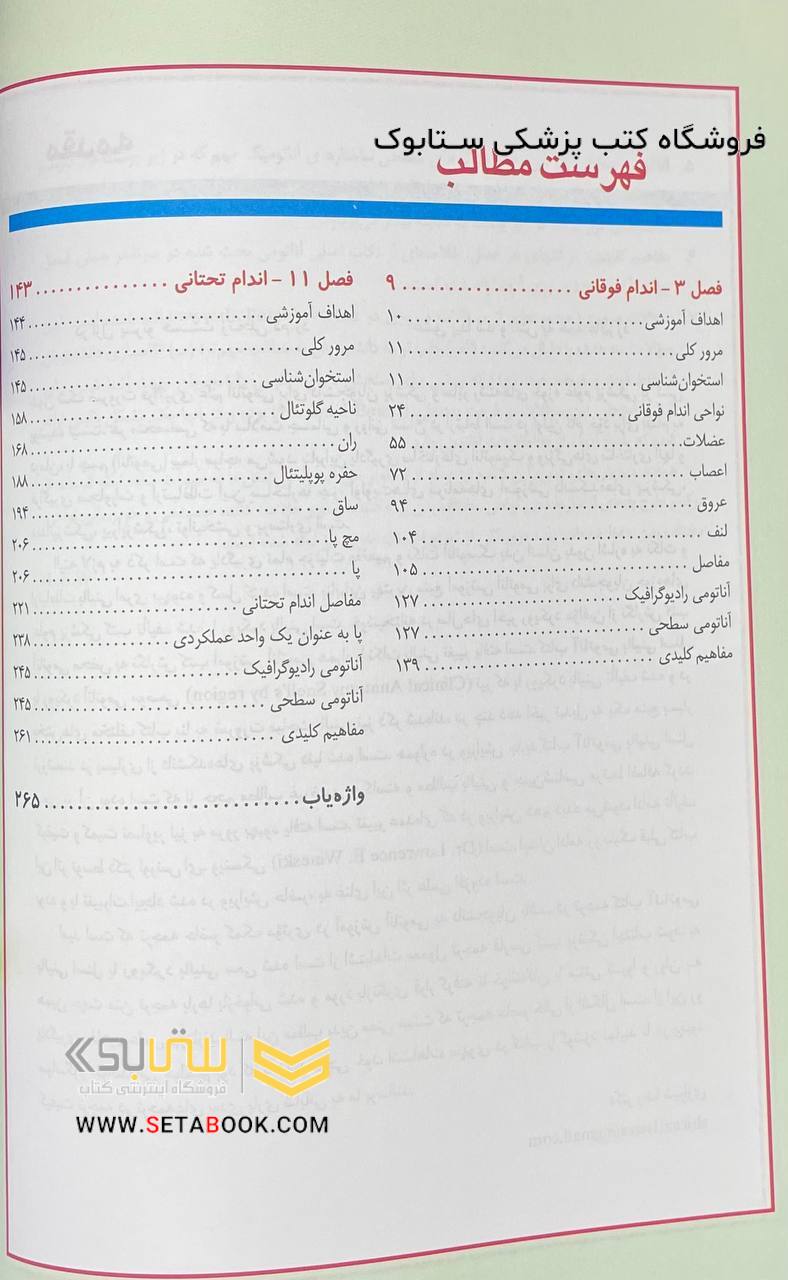 فروشگاه کتب پزشکی ستابوک
فهرست مطالب
فصل ۳ - اندام فوقانی ................... ۹
اهداف آموزشی ................... ۱۰
مرور کلی ................... ۱۱
استخوان‌شناسی ................... ۱۱
نواحی اندام فوقانی ................... ۲۴
عضلات ................... ۵۵
اعصاب ................... ۷۲
عروق ................... ۹۴
لنف ................... ۱۰۴
مفاصل ................... ۱۰۵
آناتومی رادیوگرافیک ................... ۱۲۷
آناتومی سطحی ................... ۱۲۷
مفاهیم کلیدی ................... ۱۳۹
فصل ۱۱ - اندام تحتانی ................... ۱۴۳
اهداف آموزشی ................... ۱۴۴
مرور کلی ................... ۱۴۵
استخوان‌شناسی ................... ۱۴۵
ناحیه گلوتئال ................... ۱۵۸
ران ................... ۱۶۸
حفره پوپلیتئال ................... ۱۸۸
ساق ................... ۱۹۴
مچ پا ................... ۲۰۶
پا ................... ۲۰۶
مفاصل اندام تحتانی ................... ۲۲۱
پا به عنوان یک واحد عملکردی ................... ۲۳۸
آناتومی رادیوگرافیک ................... ۲۴۵
آناتومی سطحی ................... ۲۴۵
مفاهیم کلیدی ................... ۲۶۱
واژه‌یاب ................... ۲۶۵
ستابوک
فروشگاه اینترنتی کتاب
WWW.SETABOOK.COM